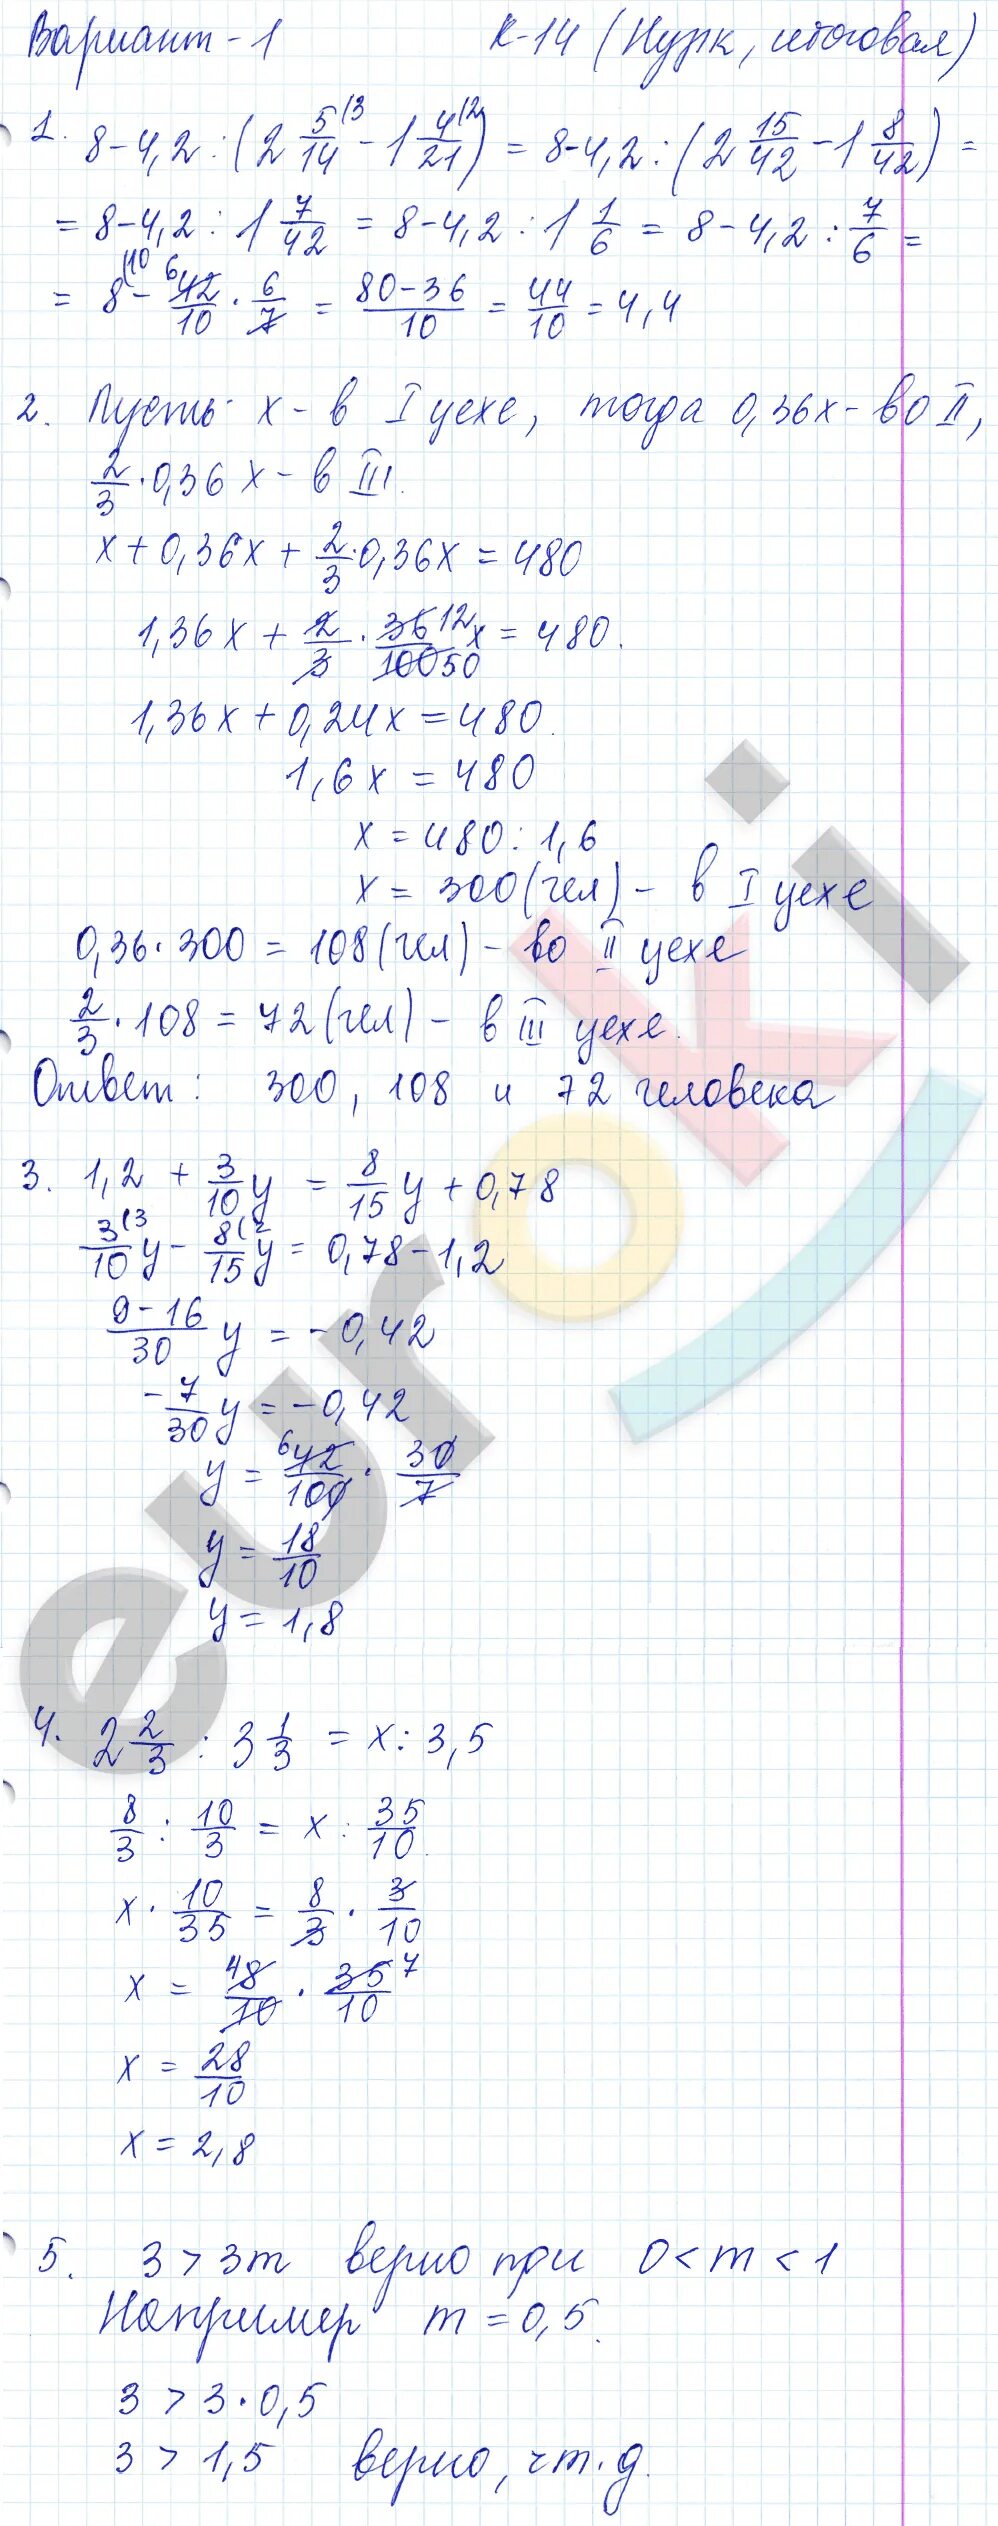 Вариант-1 К-14 (Нурк, итоговая)
1. 8-4,2:(2 5/14 (3 - 1 4/21 (2) = 8-4,2:(2 15/42 - 1 8/42) =
= 8-4,2 : 1 7/42 = 8-4,2 : 1 1/6 = 8-4,2 : 7/6 =
= 8 (10 - 6 42/10 · 6/7 = 80-36/10 = 44/10 = 4,4
2. Пусть x - в I цехе, тогда 0,36x - во II,
2/3 · 0,36 x - в III.
x + 0,36x + 2/3 · 0,36x = 480
1,36x + 2/3 · 36 12/100 50 x = 480.
1,36x + 0,24x = 480.
1,6x = 480
x = 480 : 1,6
x = 300 (чел) - в I цехе
0,36 · 300 = 108 (чел) - во II цехе
2/3 · 108 = 72 (чел) - в III цехе.
Ответ: 300, 108 и 72 человека
3. 1,2 + 3/10 y = 8/15 y + 0,78
3(3/10 y - 8(2/15 y = 0,78 - 1,2
9-16/30 y = -0,42
-7/30 y = -0,42
y = 6 42/100 · 30/7
y = 18/10
y = 1,8
4. 2 2/3 : 3 1/3 = x : 3,5
8/3 : 10/3 = x : 35/10.
x · 10/35 = 8/3 · 3/10
x = 4 8/10 · 35 7/10
x = 28/10
x = 2,8
5. 3 > 3m верно при 0 < m < 1
Например m = 0,5.
3 > 3 · 0,5
3 > 1,5 верно, ч.т.д.
euroki